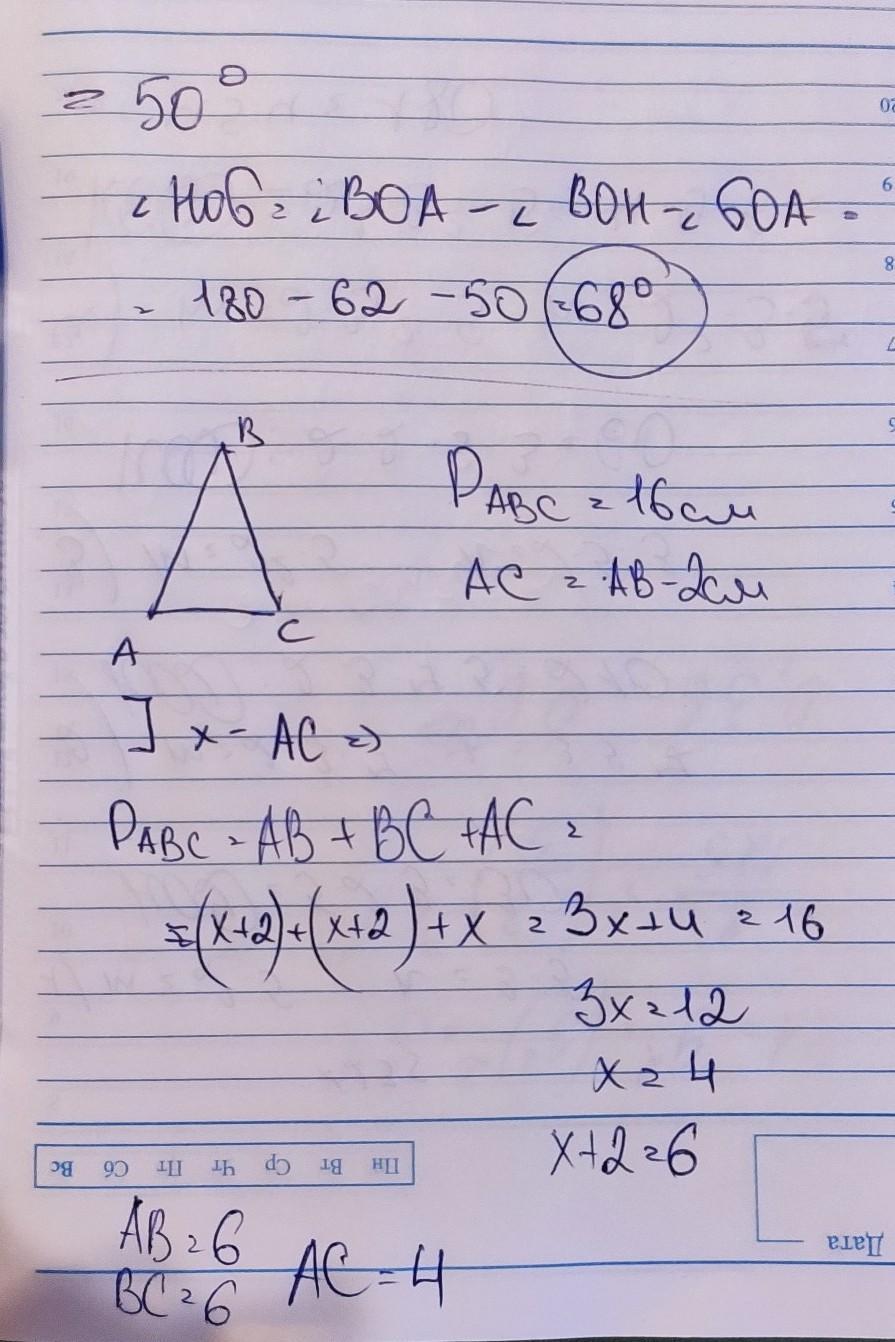 = 50°
∠HOG = ∠BOA - ∠BOH - ∠GOA =
= 180 - 62 - 50 = 68°
B
A
C
P_ABC = 16 см
AC = AB - 2 см
] x - AC =>
P_ABC = AB + BC + AC =
= (x+2) + (x+2) + x = 3x+4 = 16
3x = 12
x = 4
x+2 = 6
Пн Вт Ср Чт Пт Сб Вс
Дата
AB = 6
BC = 6
AC = 4